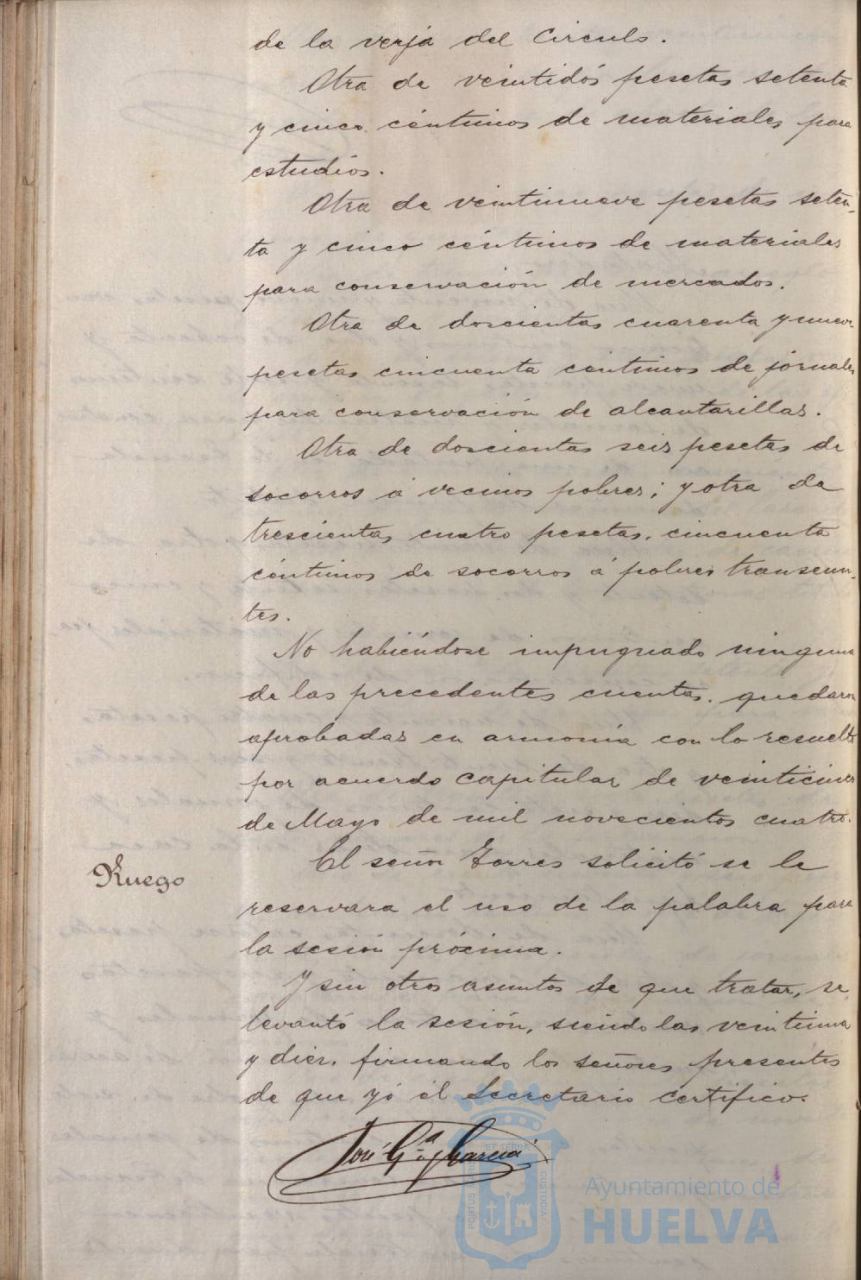 de la verja del Circulo.
Otra de veintidós pesetas setenta
y cinco céntimos de materiales para
estudios.
Otra de veintinueve pesetas seten-
ta y cinco céntimos de materiales
para conservación de mercados.
Otra de doscientas cuarenta y nueve
pesetas cincuenta céntimos de jornales
para conservación de alcantarillas.
Otra de doscientas seis pesetas de
socorros á vecinos pobres; y otra de
trescientas cuatro pesetas, cincuenta
céntimos de socorros á pobres transeun-
tes.
No habiéndose impugnado ninguna
de las precedentes cuentas, quedaron
aprobadas en armonía con lo resuelto
por acuerdo capitular de veinticinco
de Mayo de mil novecientos cuatro.
Ruego
El señor Torres solicitó se le
reservara el uso de la palabra para
la sesión próxima.
Y sin otros asuntos de que tratar, se
levantó la sesión, siendo las veintiuna
y diez, firmando los señores presentes
de que yó el Secretario certifico.
José Gª y García
Ayuntamiento de
HUELVA